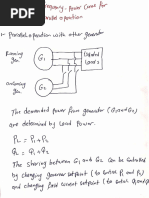 Frequency-Power Curve for
Parallel operation
1- Parallel operation with other generator
Running
gen
G1
Isolated
Loads
oncoming
gen
G2
The demanded power from generator (G1 and G2)
are determined by Load Power.
PL = P1 + P2
QL = Q1 + Q2
The sharing between G1 and G2 can be controlled
by changing governor setpoint (to control P1 and P2)
and changing field current setpoint (to control Q1 and Q2)